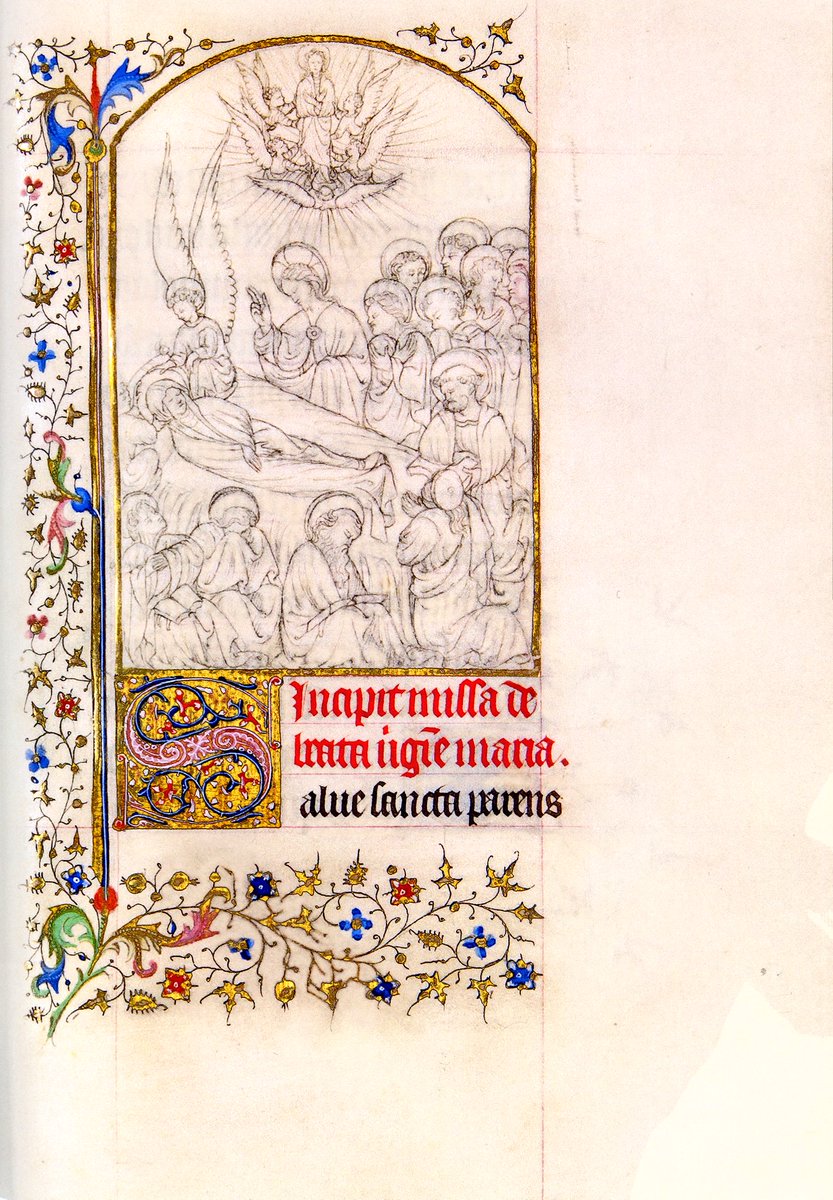 Incipit missa de
beata v̄gīe maria.
Salue sancta parens